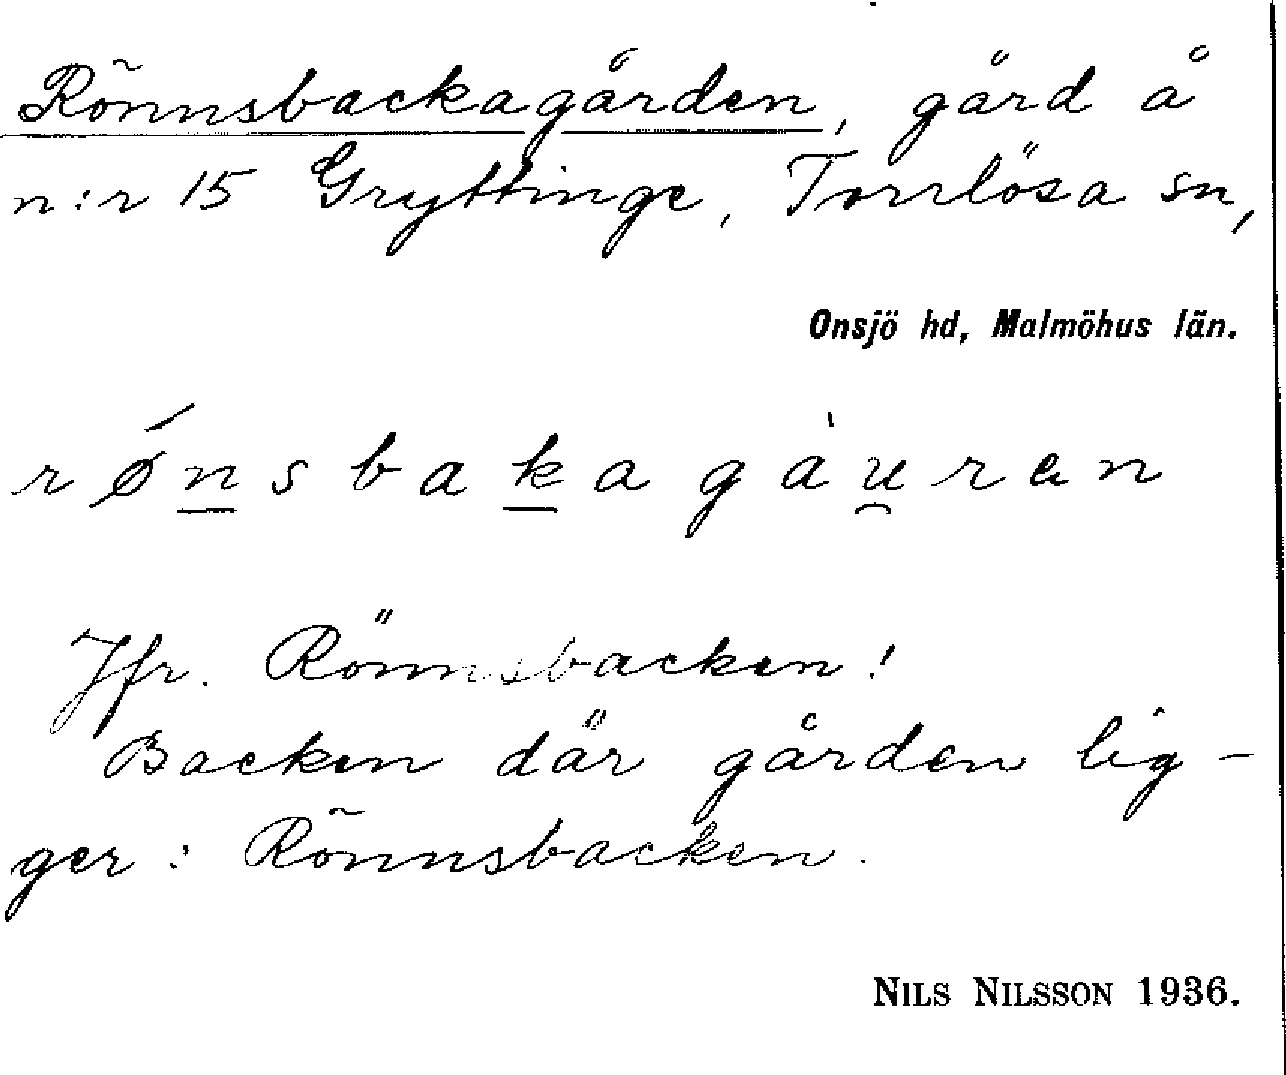 Rönnsbackagården, gård å
n:r 15 Gryttinge, Torrlösa sn,
Onsjö hd, Malmöhus län.
rǿnsbakagàu̯ren
Jfr. Rönnsbacken!
Backen där gården lig-
ger: Rönnsbacken.
NILS NILSSON 1936.